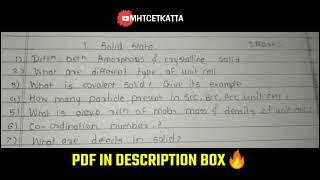 @MHTCETKATTA
1. Solid State
1) Diffn betn Amorphous & crystalline solid
2) What are different type of unit cell
3) What is covalent solid? Give its example.
4) How many particle present in SCC, BCC, FCC unit cell?
5) What is reltn of molar mass & density of unit cell?
6) Co-ordination number?
7) What are defects in solid?
PDF IN DESCRIPTION BOX🔥